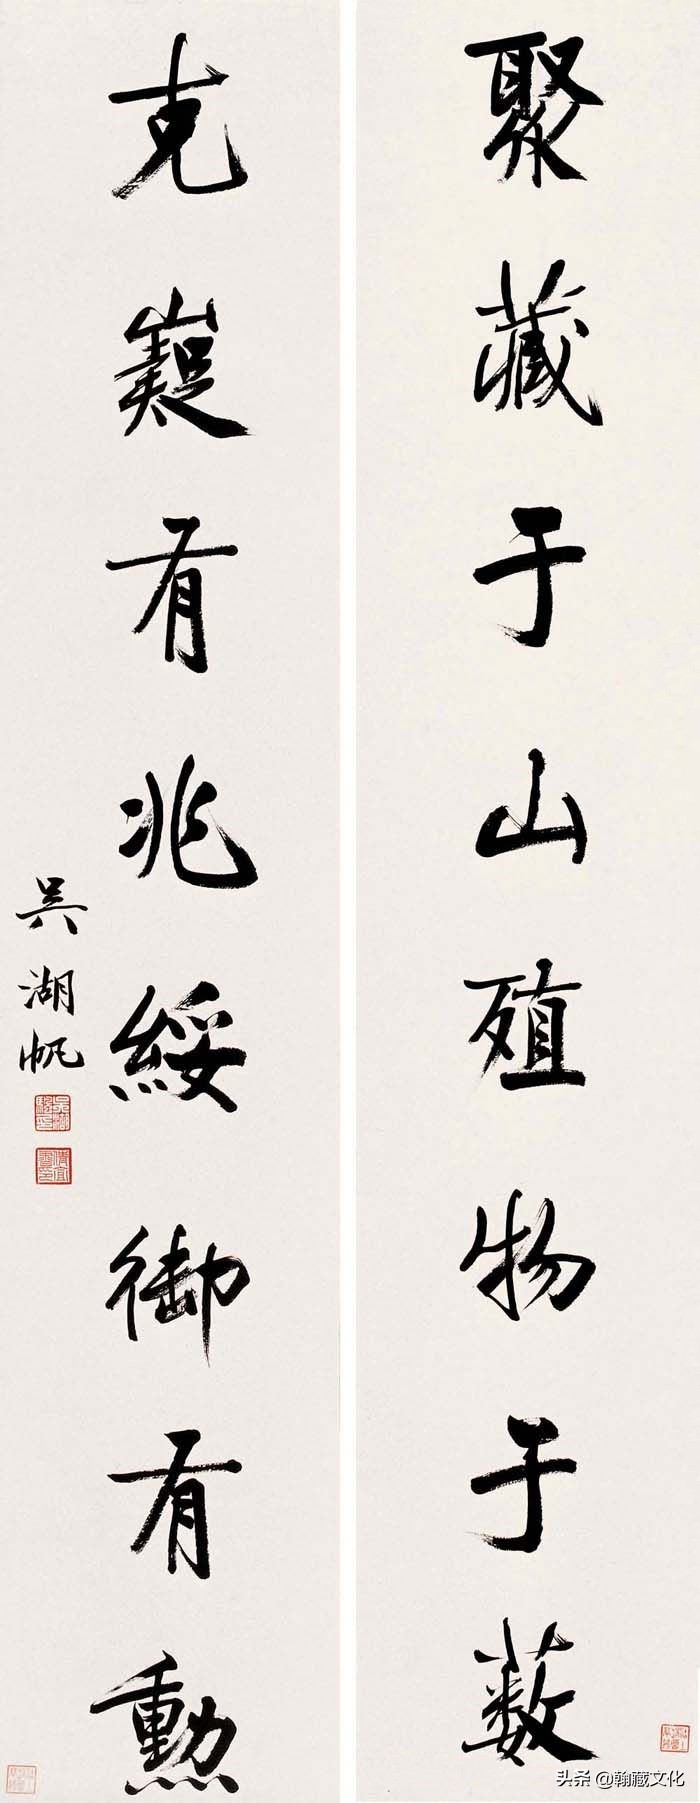 聚藏于山殖物于薮
克嶷有兆綏御有勳
吳湖帆
头条 @翰藏文化